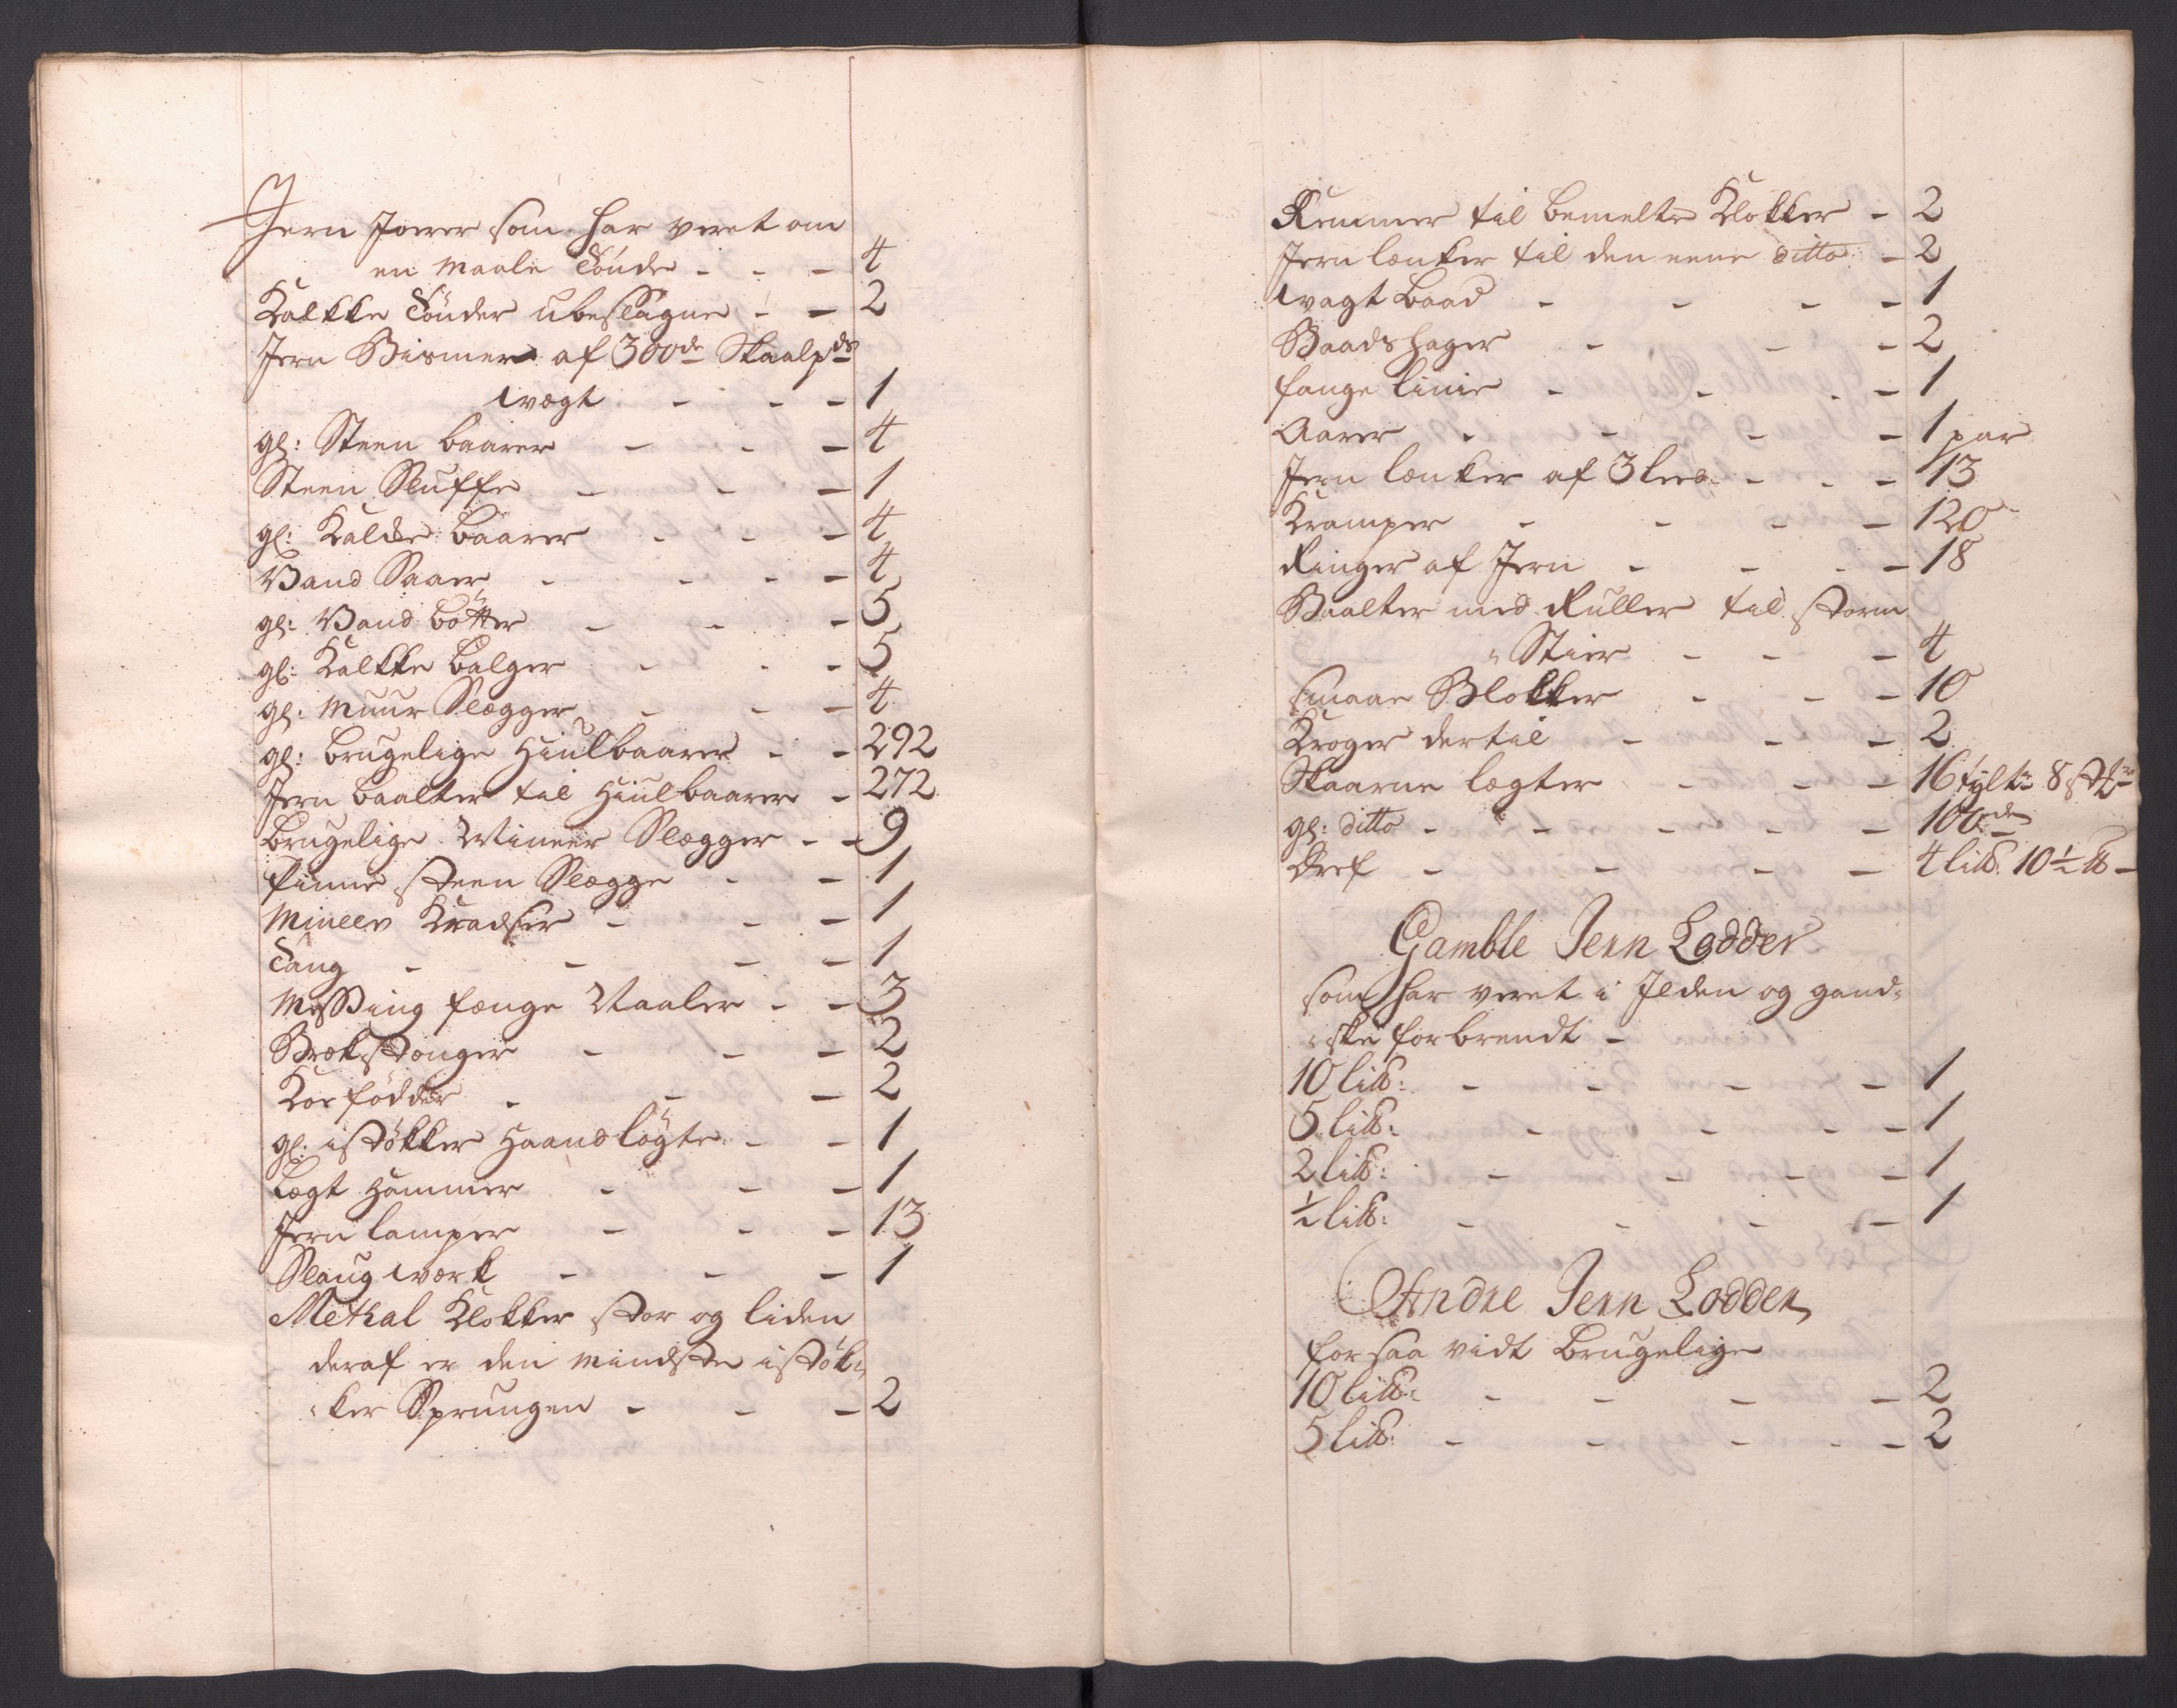 Jern Joerer som har veret om
en maale Tönde - - - 4
Kalkke Tönder ubeslagne - - 2
Jern Bismer af 300de Skaalpds
wægt - - - 1
gl: Steen baarer - - - 4
Steen Sluffe - - - 1
gl: Kalcke baarer - - - 4
Vand Saaer - - - - 4
gl: Vand bötter - - - 5
gl: Kalkke balger - - - 5
gl: Muur Slægger - - - 4
gl: brugelige Hiulbaarer - - 292
Jern baalter til Hiulbaarer - 272
brugelige Mineer Slægger - - 9
Pinne steen Slægge - - 1
Mineer Kradser - - - 1
Tang - - - - 1
Messing fænge Naaler - - 3
Brækstænger - - - 2
Koe födder - - - 2
gl: istökker Haandlöyte - - 1
Lægt Hammer - - - 1
Jern lamper - - - 13
Slaugwærk - - - 1
Methal Klokker stor og liden
deraf er den mindste istök-
ker Sprungen - - - 2
Remmer til bemelte Klokker - 2
Jern lænker til den eene ditto - 2
wagt baad - - - - 1
Baadshager - - - 2
fange linie - - - - 1
Aarer - - - - 1 par
Jern lænker af 3 leed - - - 13
Kramper - - - - 120
Ringer af Jern - - - - 18
Baalter med Ruller til storm
Stier - - - 4
smaae Blokker - - - 10
Kroger dertil - - - 2
Skaarne lægter - - - 16 tylter 8 str
gl: ditto - - - - - 100de
Dref - - - - 4 lit℔: 10½ ℔ -
Gamble Jern Lodder
som har veret i Ilden og gand-
ske forbrendt -
10 li℔: - - - - 1
5 li℔: - - - - 1
2 li℔: - - - - 1
½ li℔: - - - - 1
Andre Jern Lodder
forsaa vidt brugelige
10 li℔: - - - - 2
5 li℔: - - - - - 2